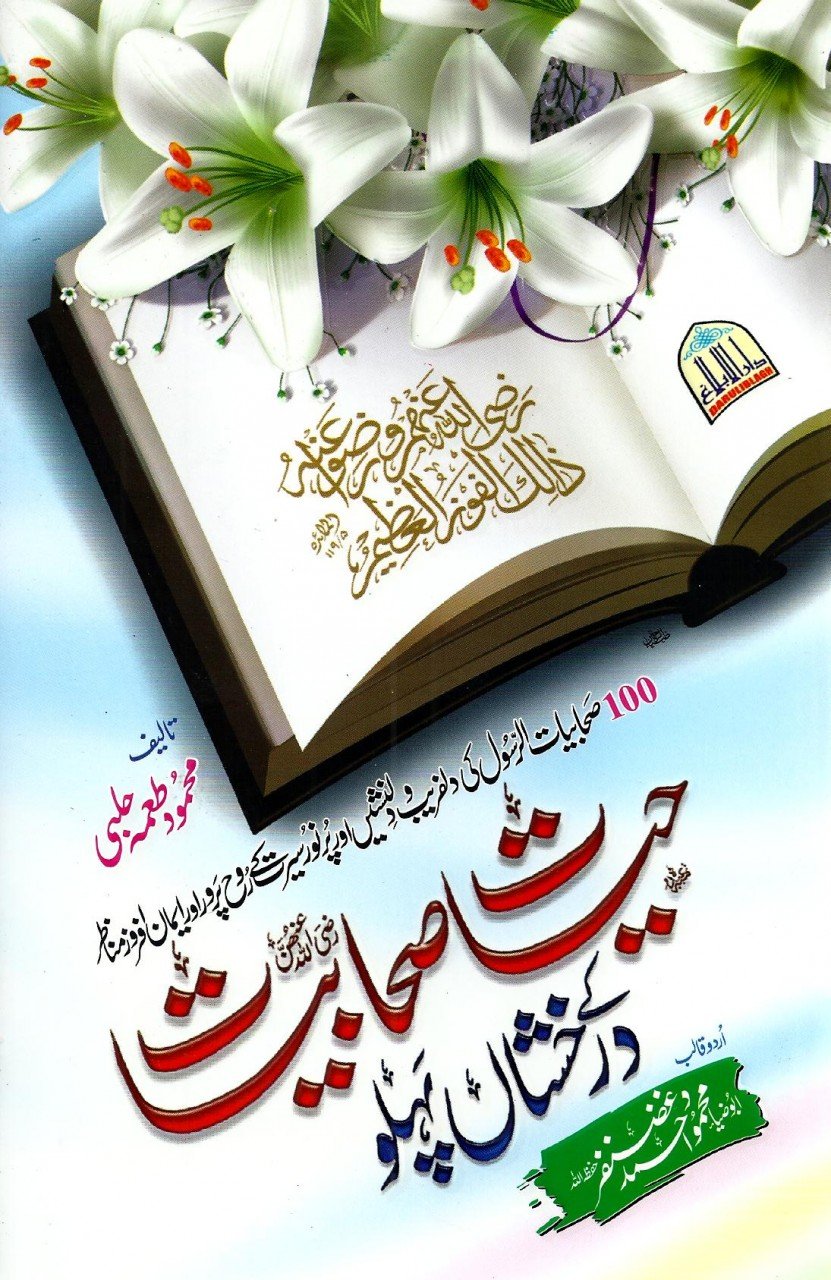 دارالابلاغ
DARULIBLAGH
رضی اللہ عنہم و رضوا عنہ
ذلك الفوز العظیم
المائدہ
۱۱۹/۵
100 صحابیات الرسول کی دلفریب و دلنشیں اور پرنور سیرت کے روح پرور اور ایمان افروز مناظر
تالیف
محمود طعمہ حلبی
حیات صحابیات
رضی اللہ عنہن
کے
درخشاں پہلو
اردو قالب
ابوضیاء محمود احمد غضنفر حفظہ اللہ